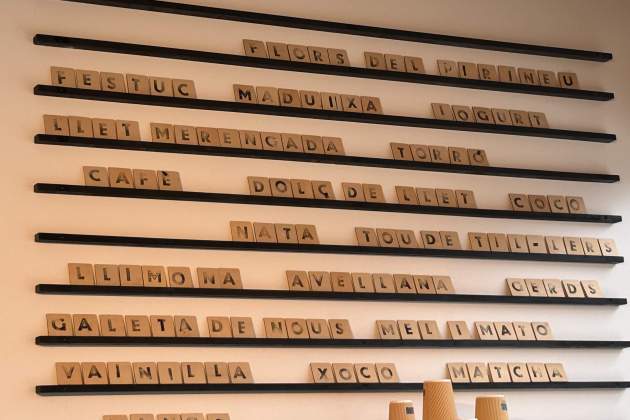 FLORS DEL PIRINEU
FESTUC MADUIXA IOGURT
LLET MERENGADA TORRÓ
CAFÈ DOLÇ DE LLET COCO
NATA TOU DE TIL-LERS
LLIMONA AVELLANA CERDS
GALETA DE NOUS MEL I MATO
VAINILLA XOCO MATCHA